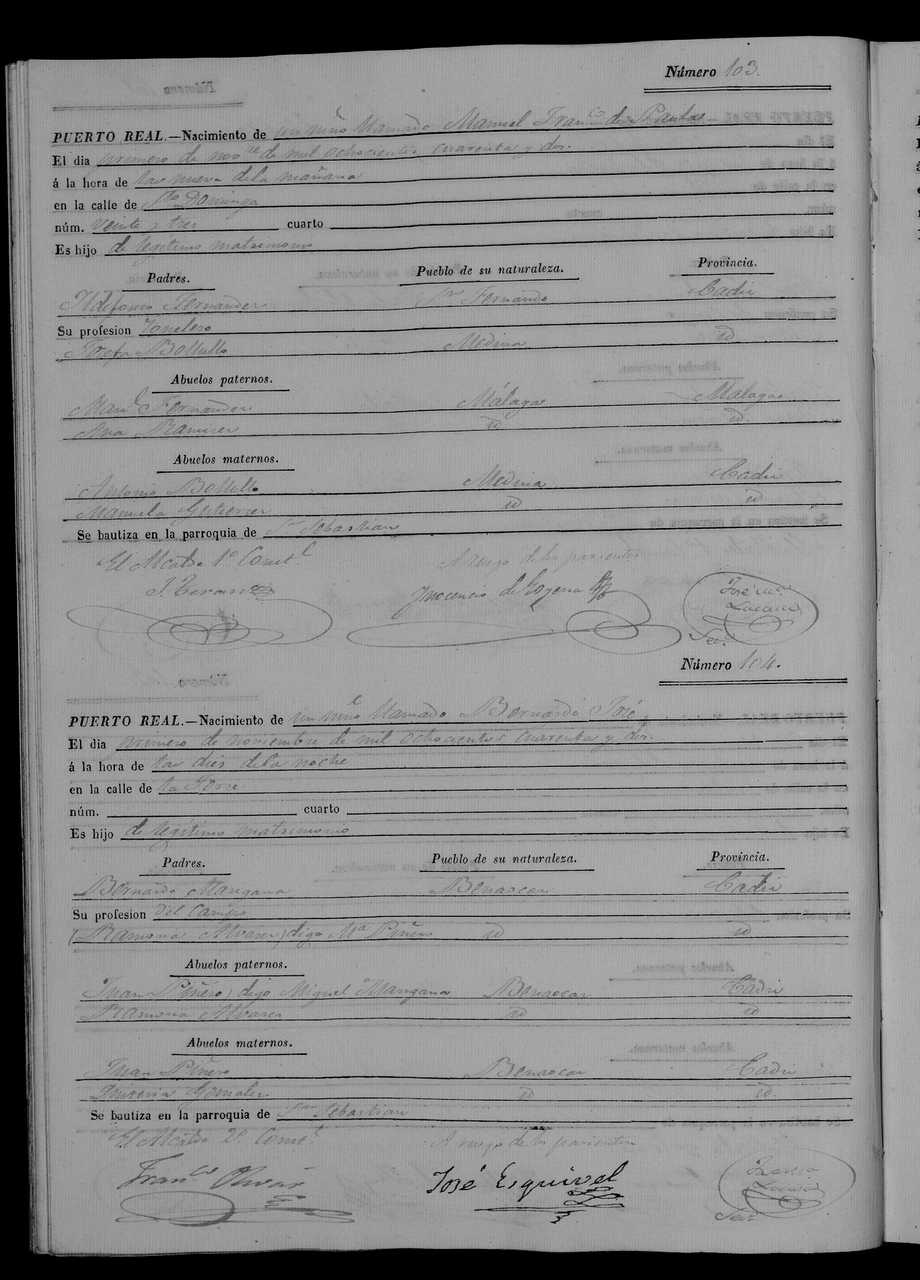 Número 103.
PUERTO REAL.—Nacimiento de un niño llamado Manuel Fran.co de Santos
El dia primero de nov.e de mil ochocientos cuarenta y dos.
á la hora de las nueve de la mañana
en la calle de S.to Domingo
núm. veinte y tres cuarto
Es hijo de legitimo matrimonio
Padres. Pueblo de su naturaleza. Provincia.
Ildefonso Fernandez S.n Fernando Cadiz
Su profesion Tonelero
Josefa Bollullo Medina id
Abuelos paternos.
Man.l Fernandez Málaga Malaga
Ana Ramirez id id.
Abuelos maternos.
Antonio Bollullo Medina Cadiz
Manuela Gutierrez id id
Se bautiza en la parroquia de S.n Sebastian
El Alcalde 1.º Const.l A ruego de los parientes
Inocencio de José
Sec.
Número 104.
PUERTO REAL.—Nacimiento de un niño llamado Bernardo José
El dia primero de noviembre de mil ochocientos cuarenta y dos.
á la hora de las diez de la noche
en la calle de la Torre
núm. cuarto
Es hijo de legitimo matrimonio
Padres. Pueblo de su naturaleza. Provincia.
Bernardo Mangana Benaocar Cadiz
Su profesion del campo
(Ramona Alvarez) digo M.a Piñero id id
Abuelos paternos.
Juan Piñero, digo Miguel Mangana Benaocar Cadiz
Ramona Alvarez id id
Abuelos maternos.
Juan Piñero Benaocar Cadiz
Gonzalez id id.
Se bautiza en la parroquia de San Sebastian
El Alcalde 2.º Const.l A ruego de los parientes
Fran.co Olivar José Esquivel
Sec.